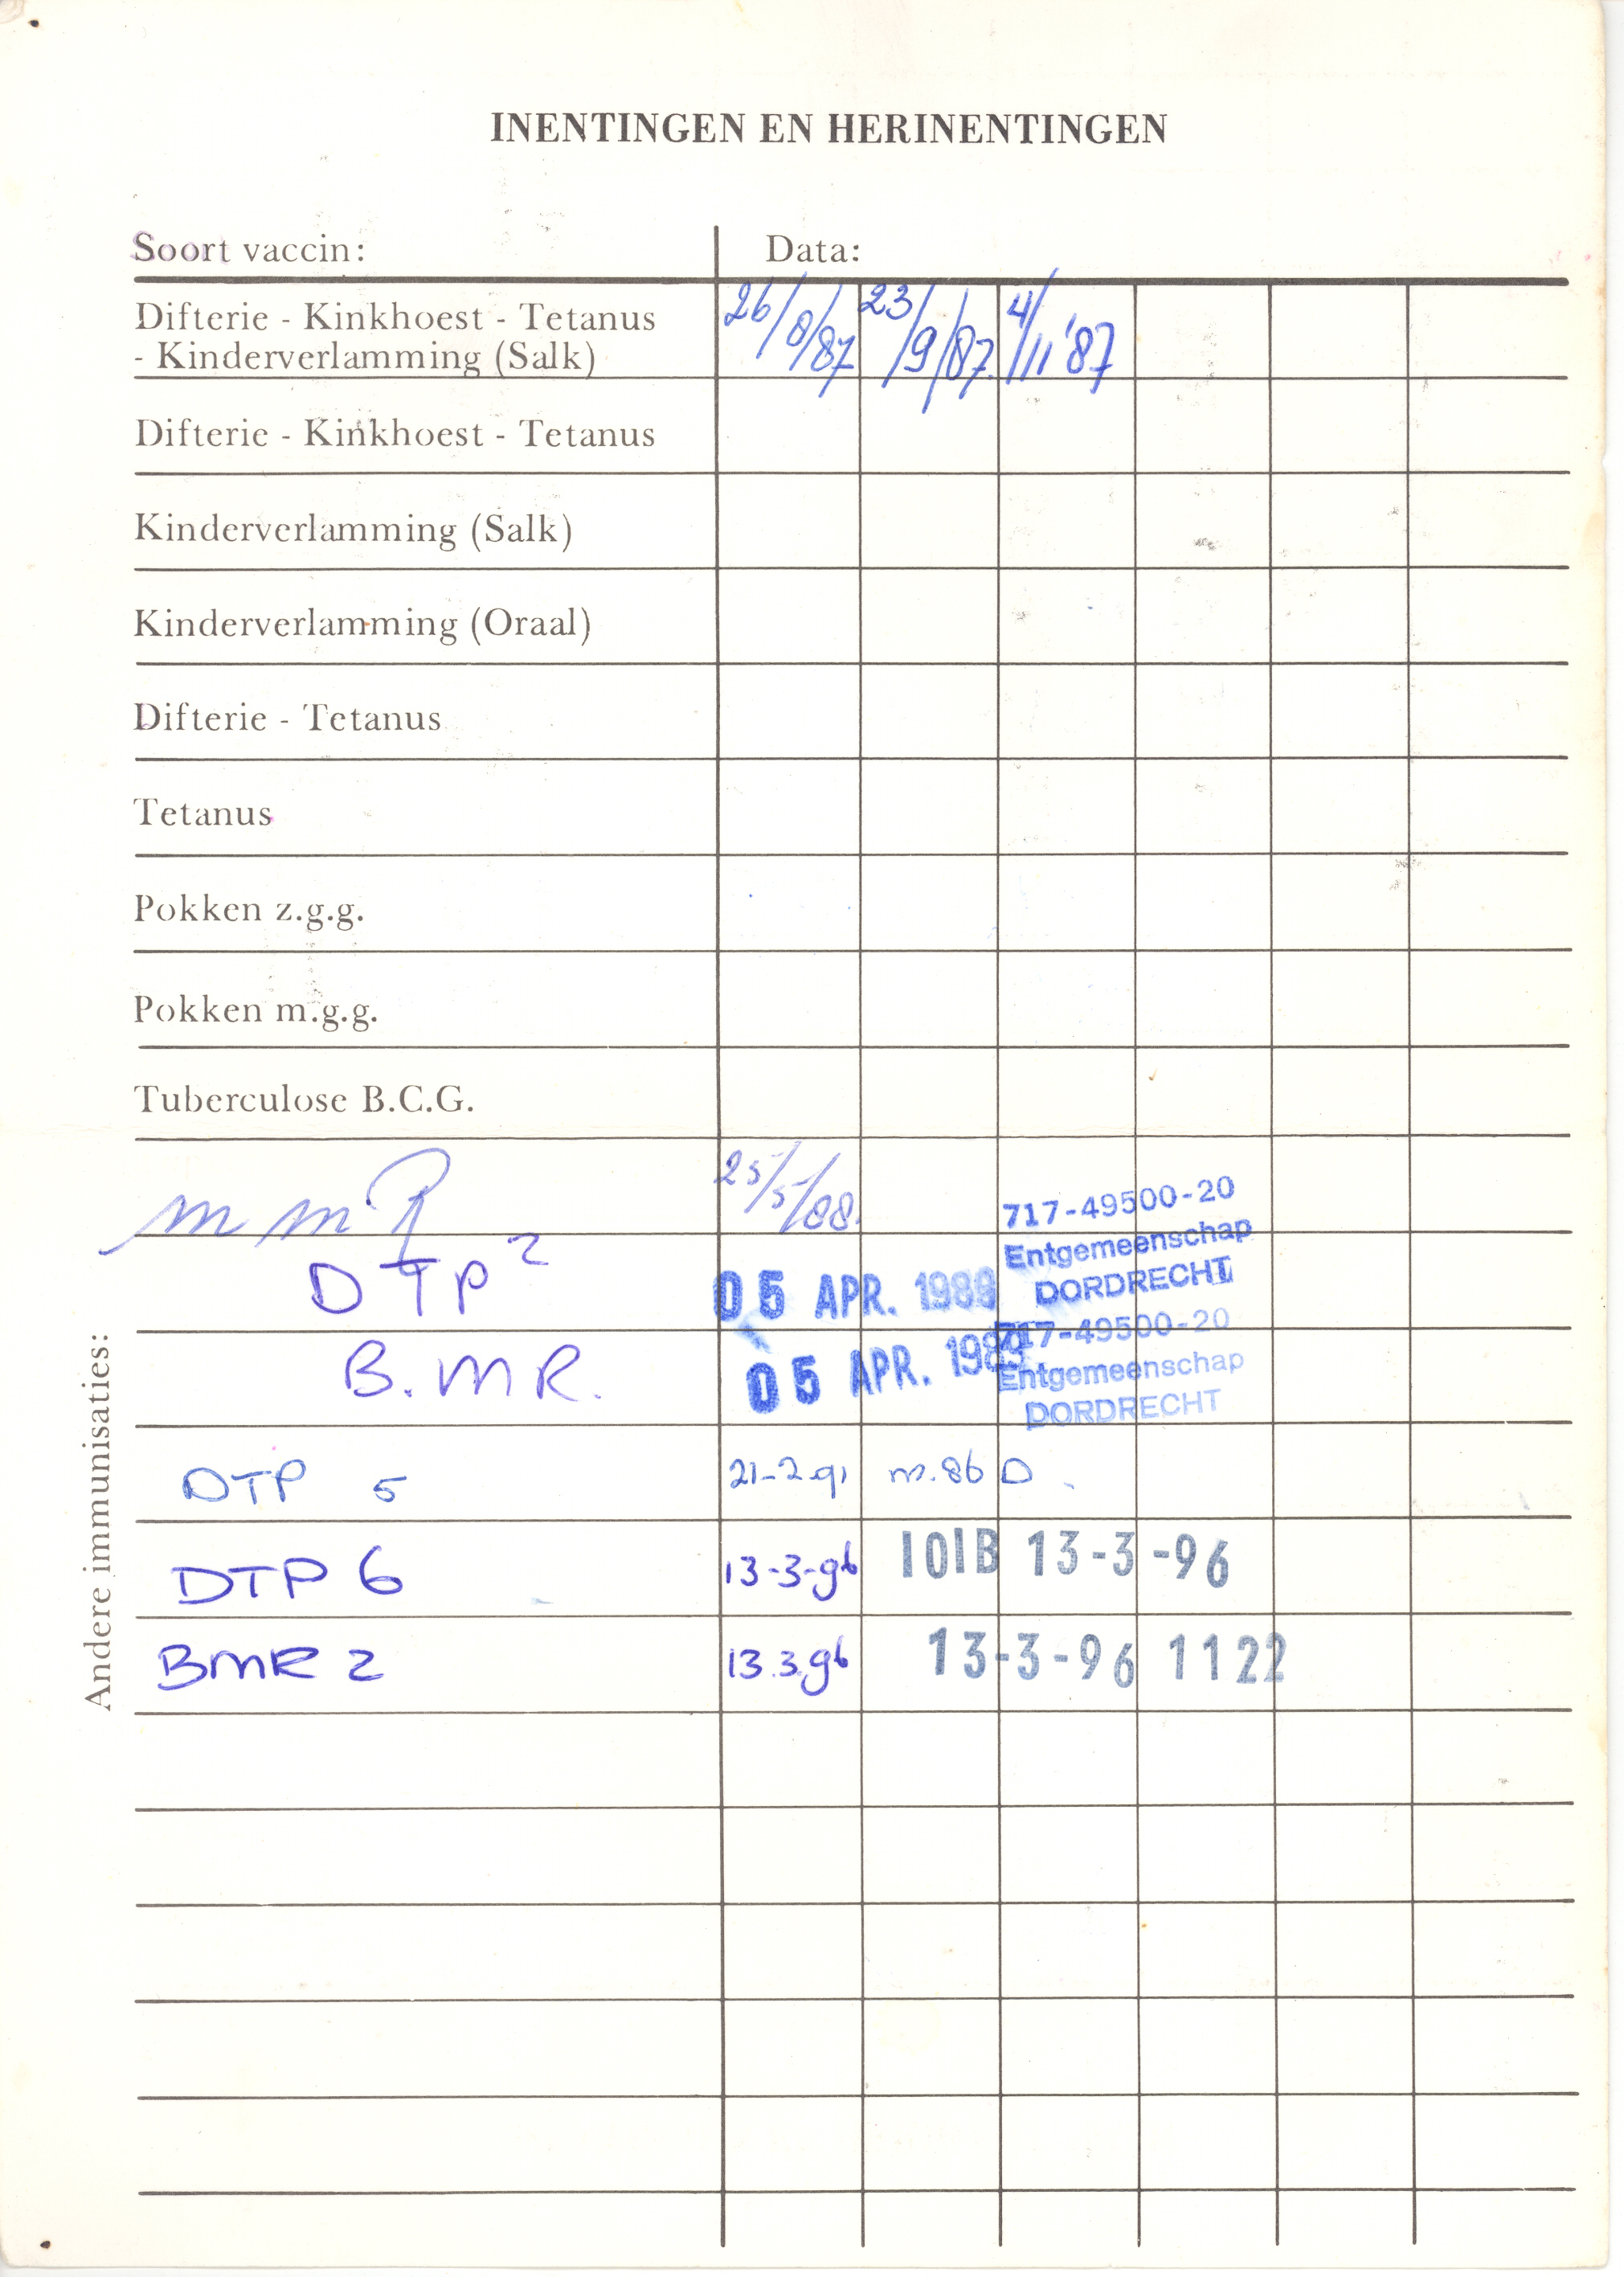 INENTINGEN EN HERINENTINGEN
Soort vaccin: Data:
Difterie - Kinkhoest - Tetanus
- Kinderverlamming (Salk) 26/8/87 23/9/87 4/11 '87
Difterie - Kinkhoest - Tetanus
Kinderverlamming (Salk)
Kinderverlamming (Oraal)
Difterie - Tetanus
Tetanus
Pokken z.g.g.
Pokken m.g.g.
Tuberculose B.C.G.
Andere immunisaties:
m m R 25/5/88
717-49500-20
Entgemeenschap
DORDRECHT
DTP 2 05 APR. 1989
717-49500-20
Entgemeenschap
DORDRECHT
B.MR. 05 APR. 1989
DTP 5 21-2-91 m.86 D
DTP 6 13-3-96 101B 13-3-96
BMR 2 13.3.96 13-3-96 1122